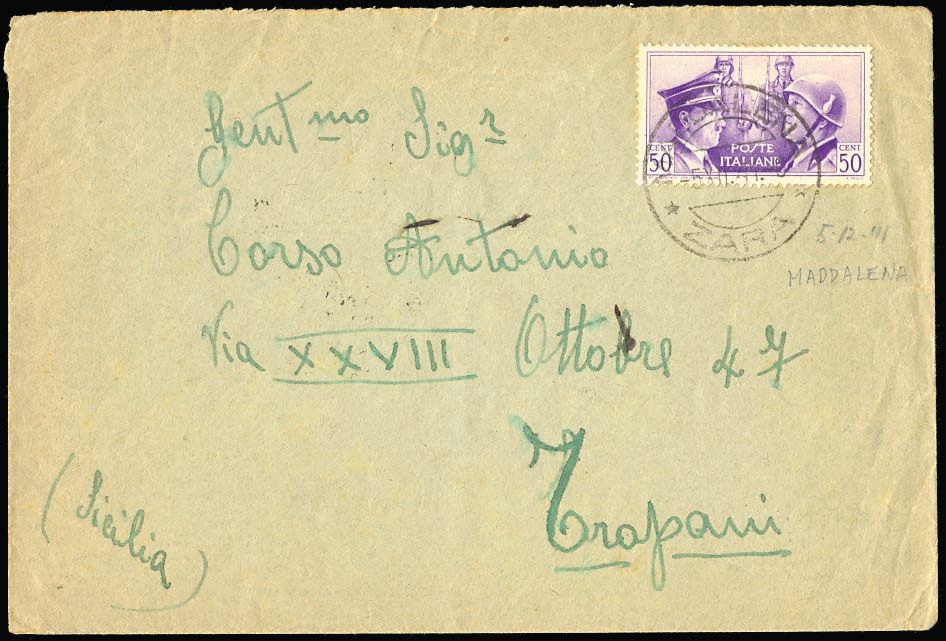 Gent mo Sig r
Corso Antonio
Via XXVIII Ottobre 47
Trapani
(Sicilia)
CENT 50
POSTE ITALIANE
CENT 50
ZARA
5-12-41
MADDALENA